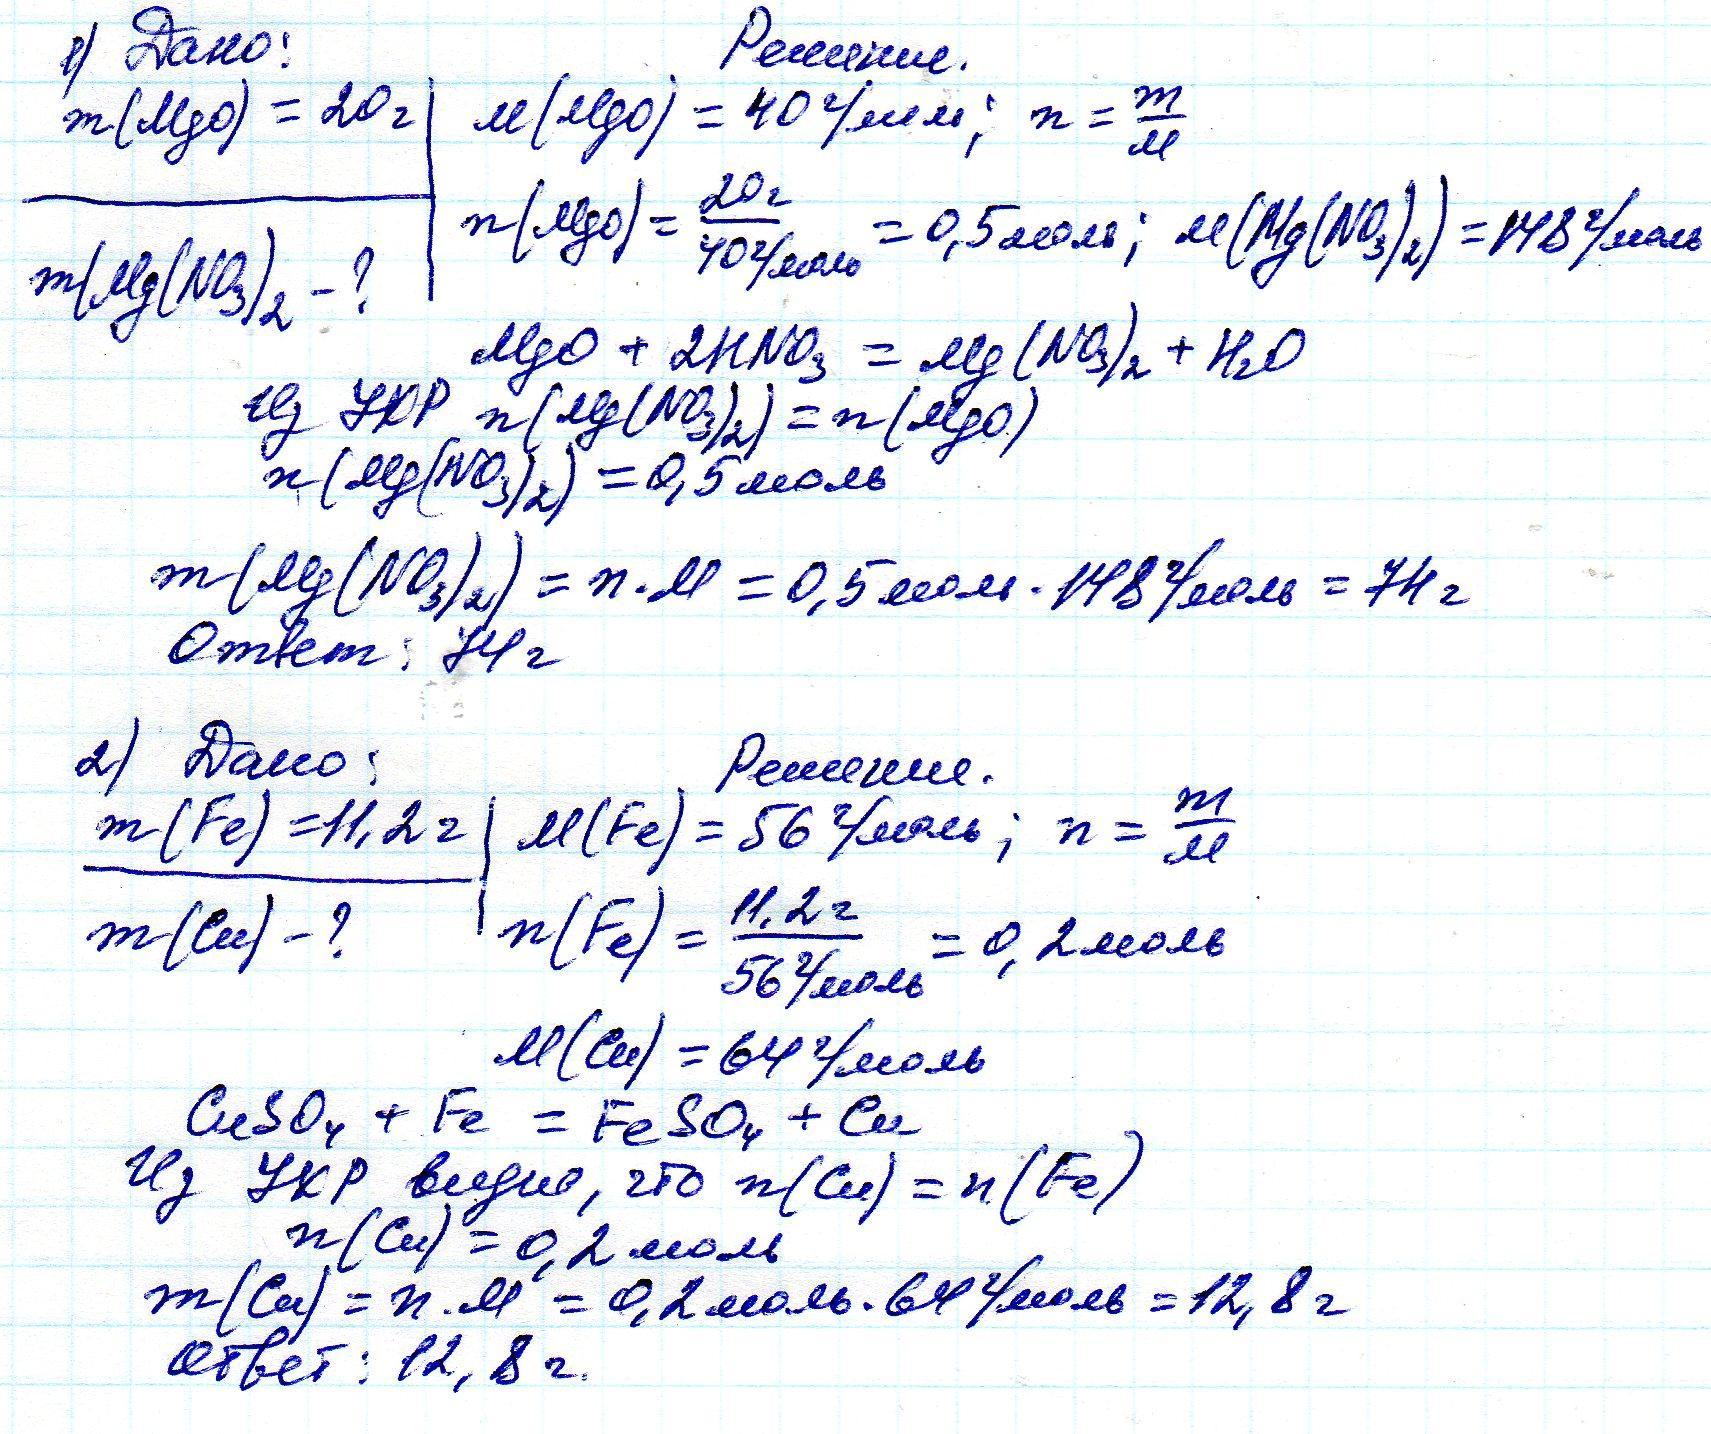 1) Дано: Решение.
m(MgO) = 20г M(MgO) = 40 г/моль; n = m/M
n(MgO) = 20г/40г/моль = 0,5 моль; M(Mg(NO3)2) = 148 г/моль
m(Mg(NO3)2 - ?
MgO + 2HNO3 = Mg(NO3)2 + H2O
Из УХР n(Mg(NO3)2) = n(MgO)
n(Mg(NO3)2) = 0,5 моль
m(Mg(NO3)2) = n·M = 0,5 моль·148 г/моль = 74 г
Ответ: 74 г
2) Дано: Решение.
m(Fe) = 11,2 г M(Fe) = 56 г/моль; n = m/M
m(Cu) - ? n(Fe) = 11,2г/56г/моль = 0,2 моль
M(Cu) = 64 г/моль
CuSO4 + Fe = FeSO4 + Cu
Из УХР видно, что n(Cu) = n(Fe)
n(Cu) = 0,2 моль
m(Cu) = n·M = 0,2 моль·64 г/моль = 12,8 г
Ответ: 12,8 г.